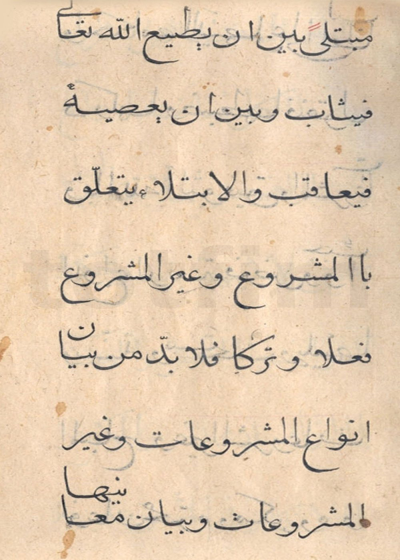 مبتلىً بين ان يطيع الله تعالى
فيثاب وبين ان يعصيه
فيعاقب والابتلاء يتعلّق
باالمشروع وغير المشروع
فعلا وتركا فلا بدّ من بيان
انواع المشروعات وغير
المشروعات وبيان معانيها